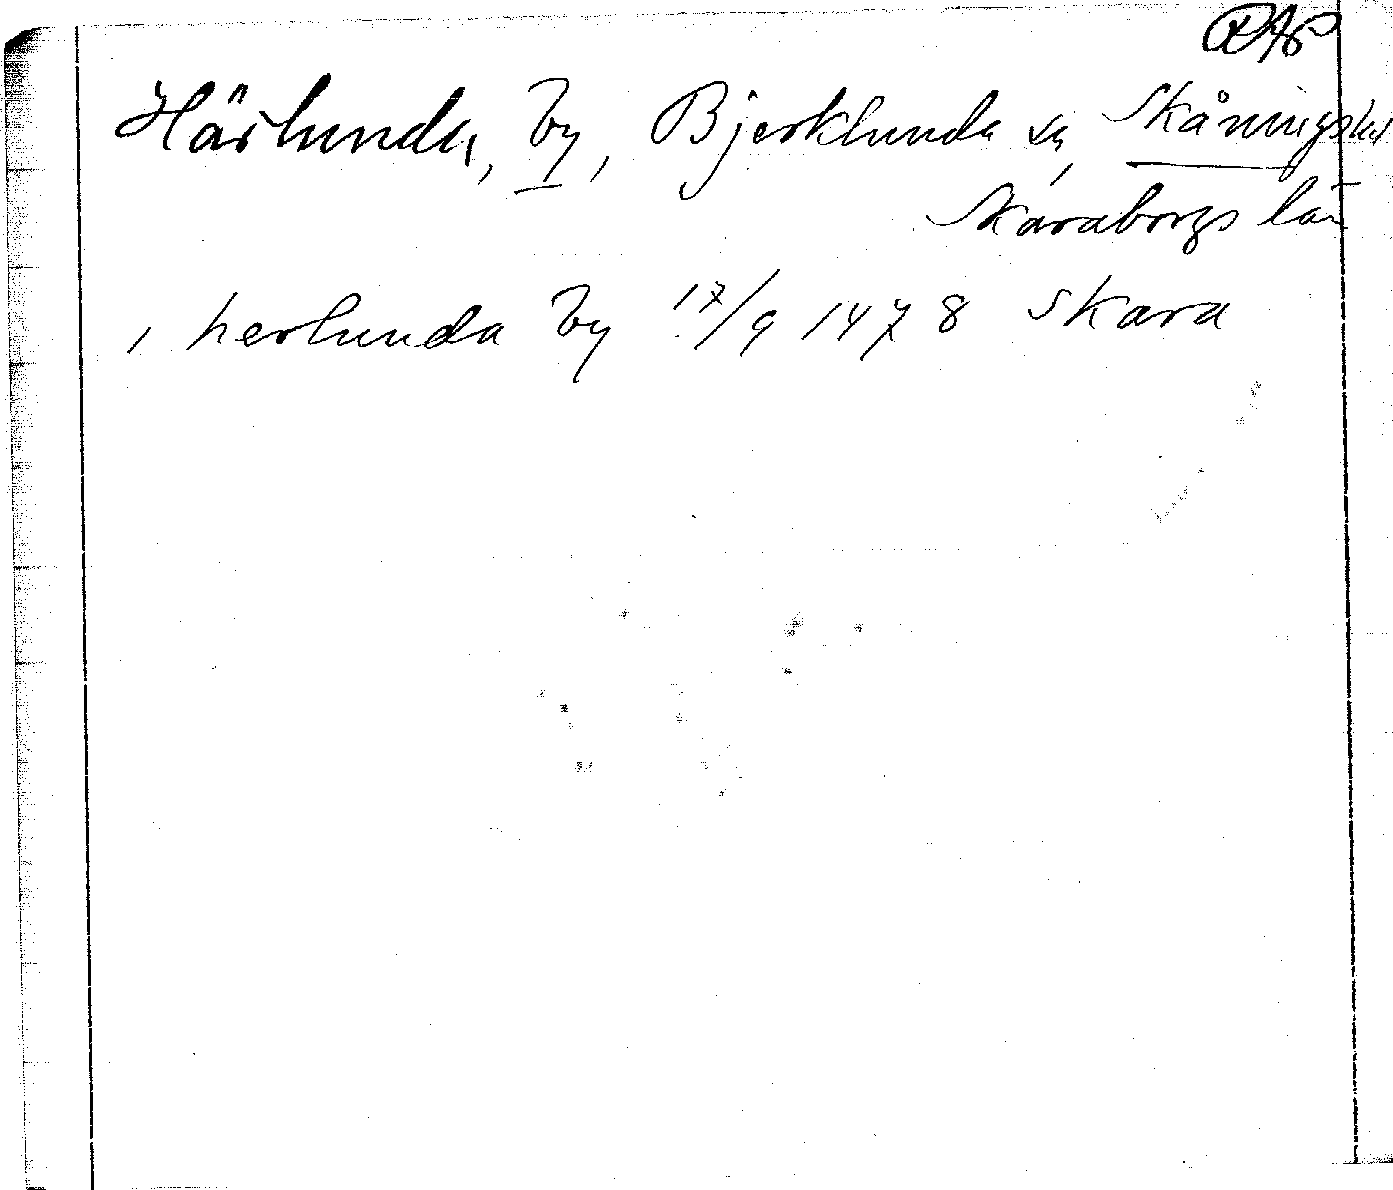 RAP
Härlunda, by, Bjerklunda sn, Skånings hd
Skaraborgs län
i herlunda by 17/9 1478 Skara